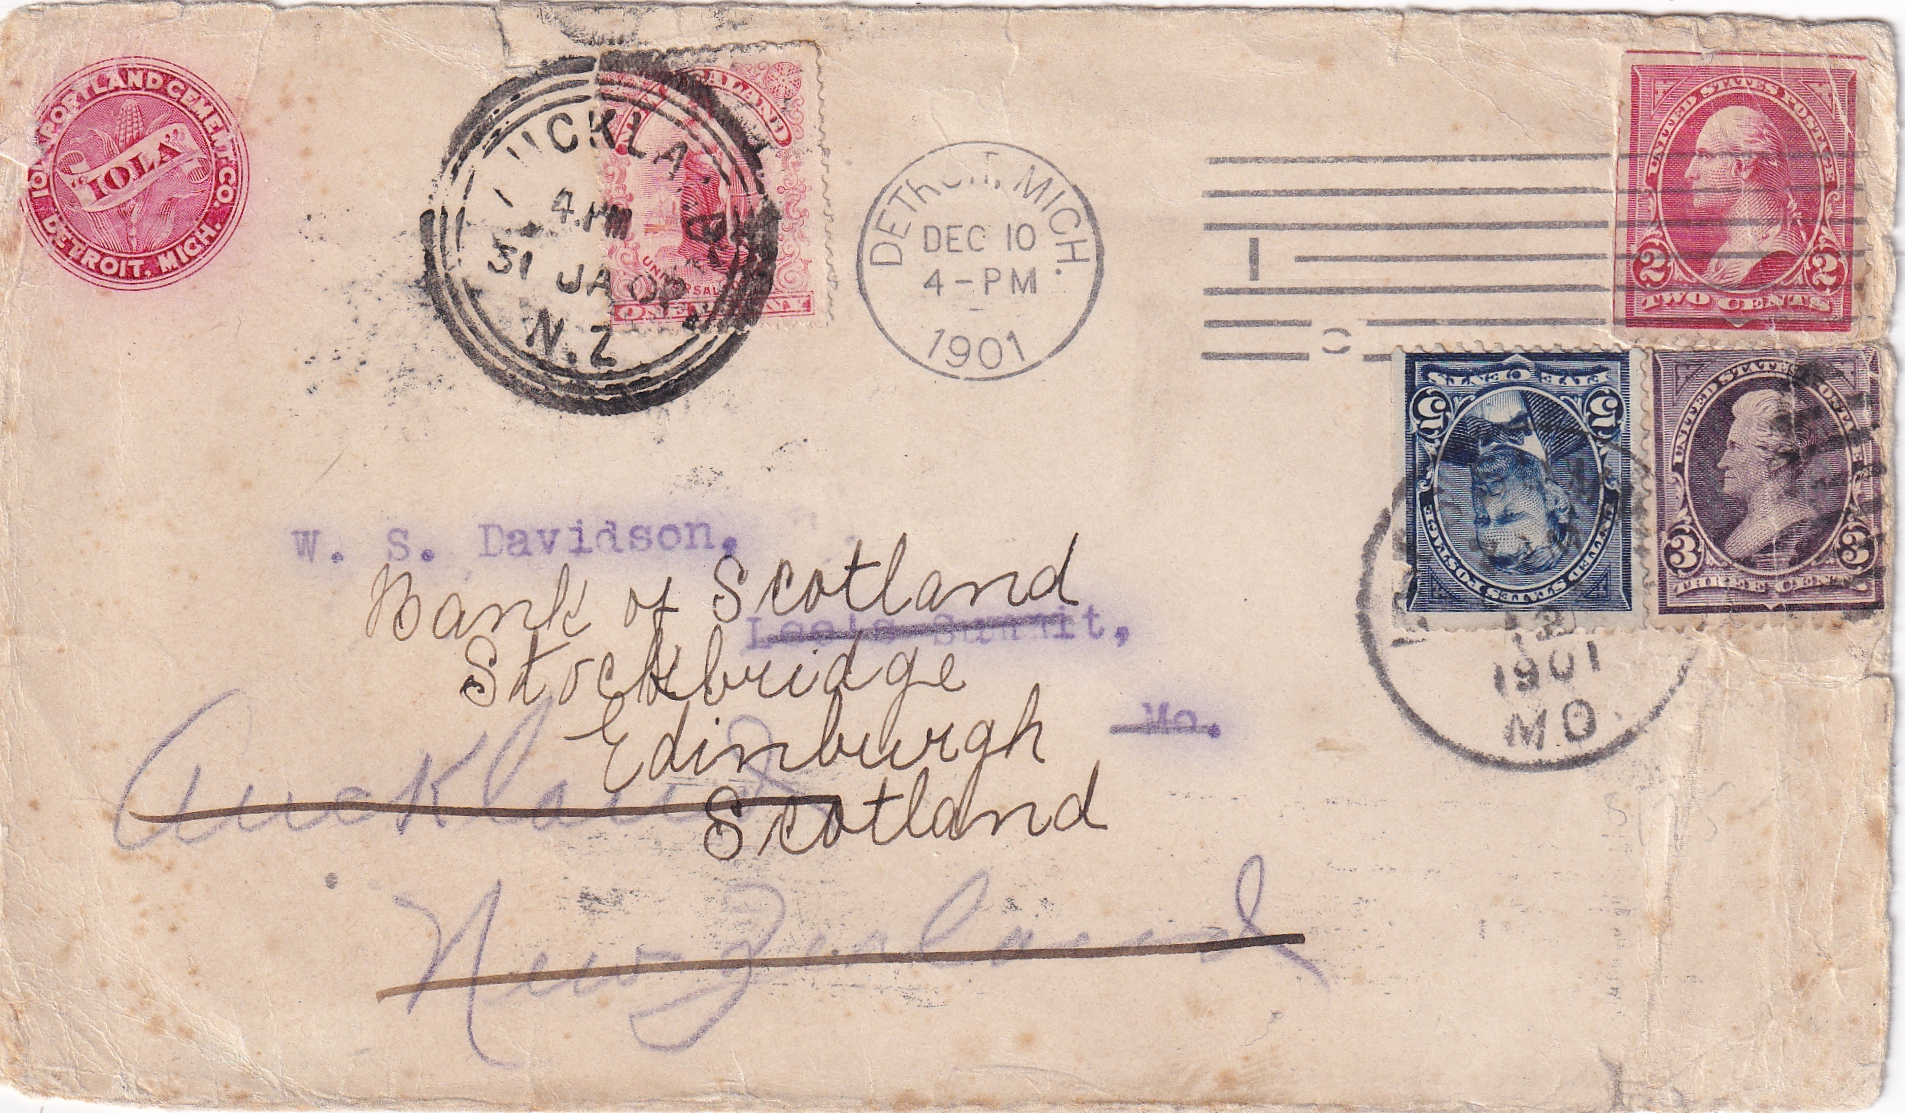 IOLA PORTLAND CEMENT CO.
"IOLA"
DETROIT, MICH.
4.PM
31 JA 02
N.Z
UNIVERSAL
ONE PENNY
DETROIT, MICH.
DEC 10
4-PM
1901
1
UNITED STATES POSTAGE
2 2
TWO CENTS
UNITED STATES POSTAGE
5 5
UNITED STATES POSTAGE
3 3
THREE CENTS
12
1901
MO.
W. S. Davidson,
Bank of Scotland
Lee's Summit,
Stockbridge
Mo.
Edinburgh
Auckland
Scotland
New Zealand